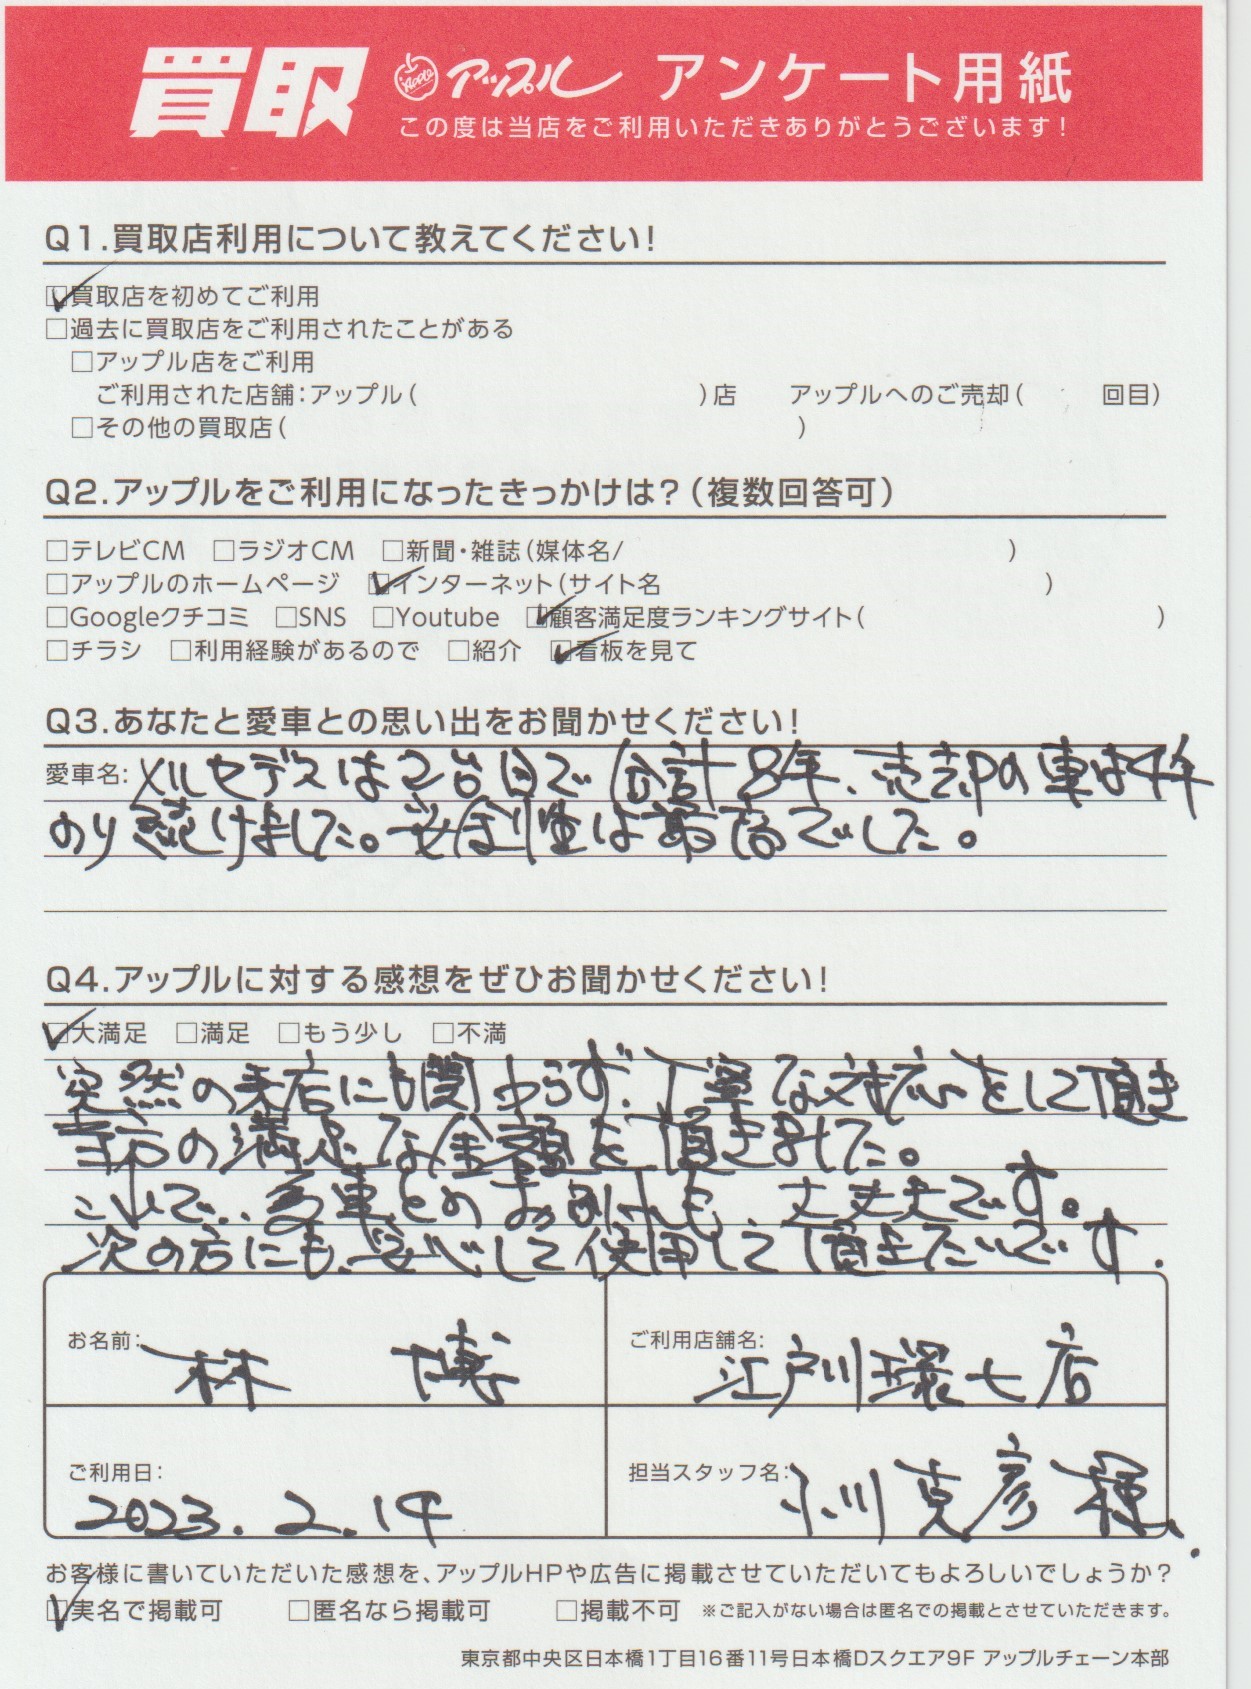 買取 Apple アップル アンケート用紙
この度は当店をご利用いただきありがとうございます!
Q1.買取店利用について教えてください!
☑買取店を初めてご利用
□過去に買取店をご利用されたことがある
□アップル店をご利用
ご利用された店舗:アップル( )店 アップルへのご売却( 回目)
□その他の買取店( )
Q2.アップルをご利用になったきっかけは?(複数回答可)
□テレビCM □ラジオCM □新聞・雑誌(媒体名/ )
□アップルのホームページ ☑インターネット(サイト名 )
□Googleクチコミ □SNS □Youtube ☑顧客満足度ランキングサイト( )
□チラシ □利用経験があるので □紹介 ☑看板を見て
Q3.あなたと愛車との思い出をお聞かせください!
愛車名:メルセデスは2台目で合計8年、売却の車は4年
のり続けました。安全性は最高でした。
Q4.アップルに対する感想をぜひお聞かせください!
☑大満足 □満足 □もう少し □不満
突然の来店にも関わらず、丁寧な対応をして頂き
の満足な金額を頂きました。
これで、愛車とのお別れも、大丈夫です。
次の方にも、安心して使用して頂きたいです.
お名前: 林 博
ご利用店舗名: 江戸川環七店
ご利用日: 2023.2.14
担当スタッフ名: 小川克彦様.
お客様に書いていただいた感想を、アップルHPや広告に掲載させていただいてもよろしいでしょうか?
☑実名で掲載可 □匿名なら掲載可 □掲載不可 ※ご記入がない場合は匿名での掲載とさせていただきます。
東京都中央区日本橋1丁目16番11号日本橋Dスクエア9F アップルチェーン本部